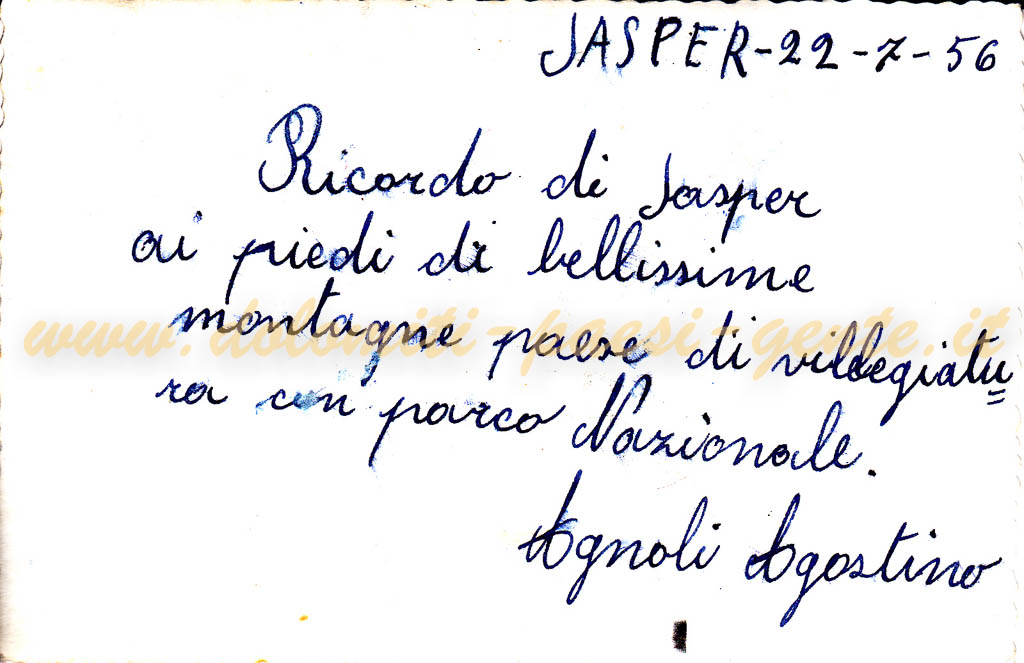 JASPER-22-7-56
Ricordo di Jasper
ai piedi di bellissime
montagne paese di villegiatu
ra con parco Nazionale.
Agnoli Agostino
www.dolomiti-paesi-gente.it